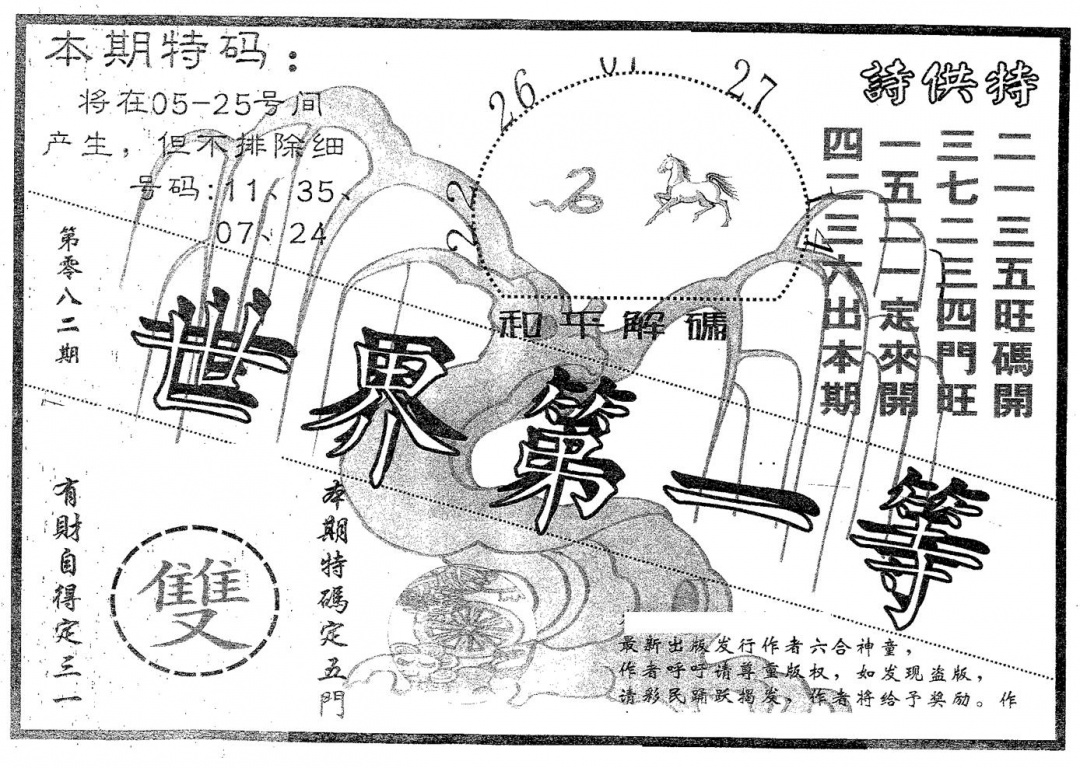 本期特码：
将在05-25号间
产生，但不排除细
号码:11、35、
07、24
第零八二期
26
01
27
22
4
和平解碼
特供詩
二一三五旺碼開
三七二三四門旺
一五二一定來開
四二三六出本期
世界第一等
有財自得定三一
雙
本期特碼定五門
最新出版发行作者六合神童，
作者呼吁请尊重版权，如发现盗版，
请彩民踊跃揭发，作者将给予奖励。作